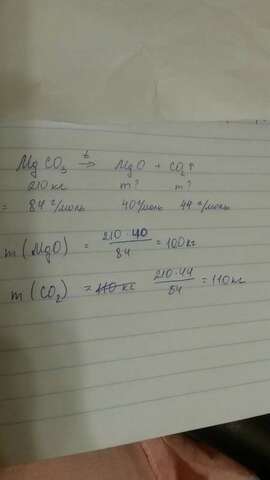 MgCO₃ →ᵗ MgO + CO₂↑
210 кг m? m?
= 84 г/моль 40 г/моль 44 г/моль
m (MgO) = 210·40/84 = 100 кг
m (CO₂) = 110 кг 210·44/84 = 110 кг